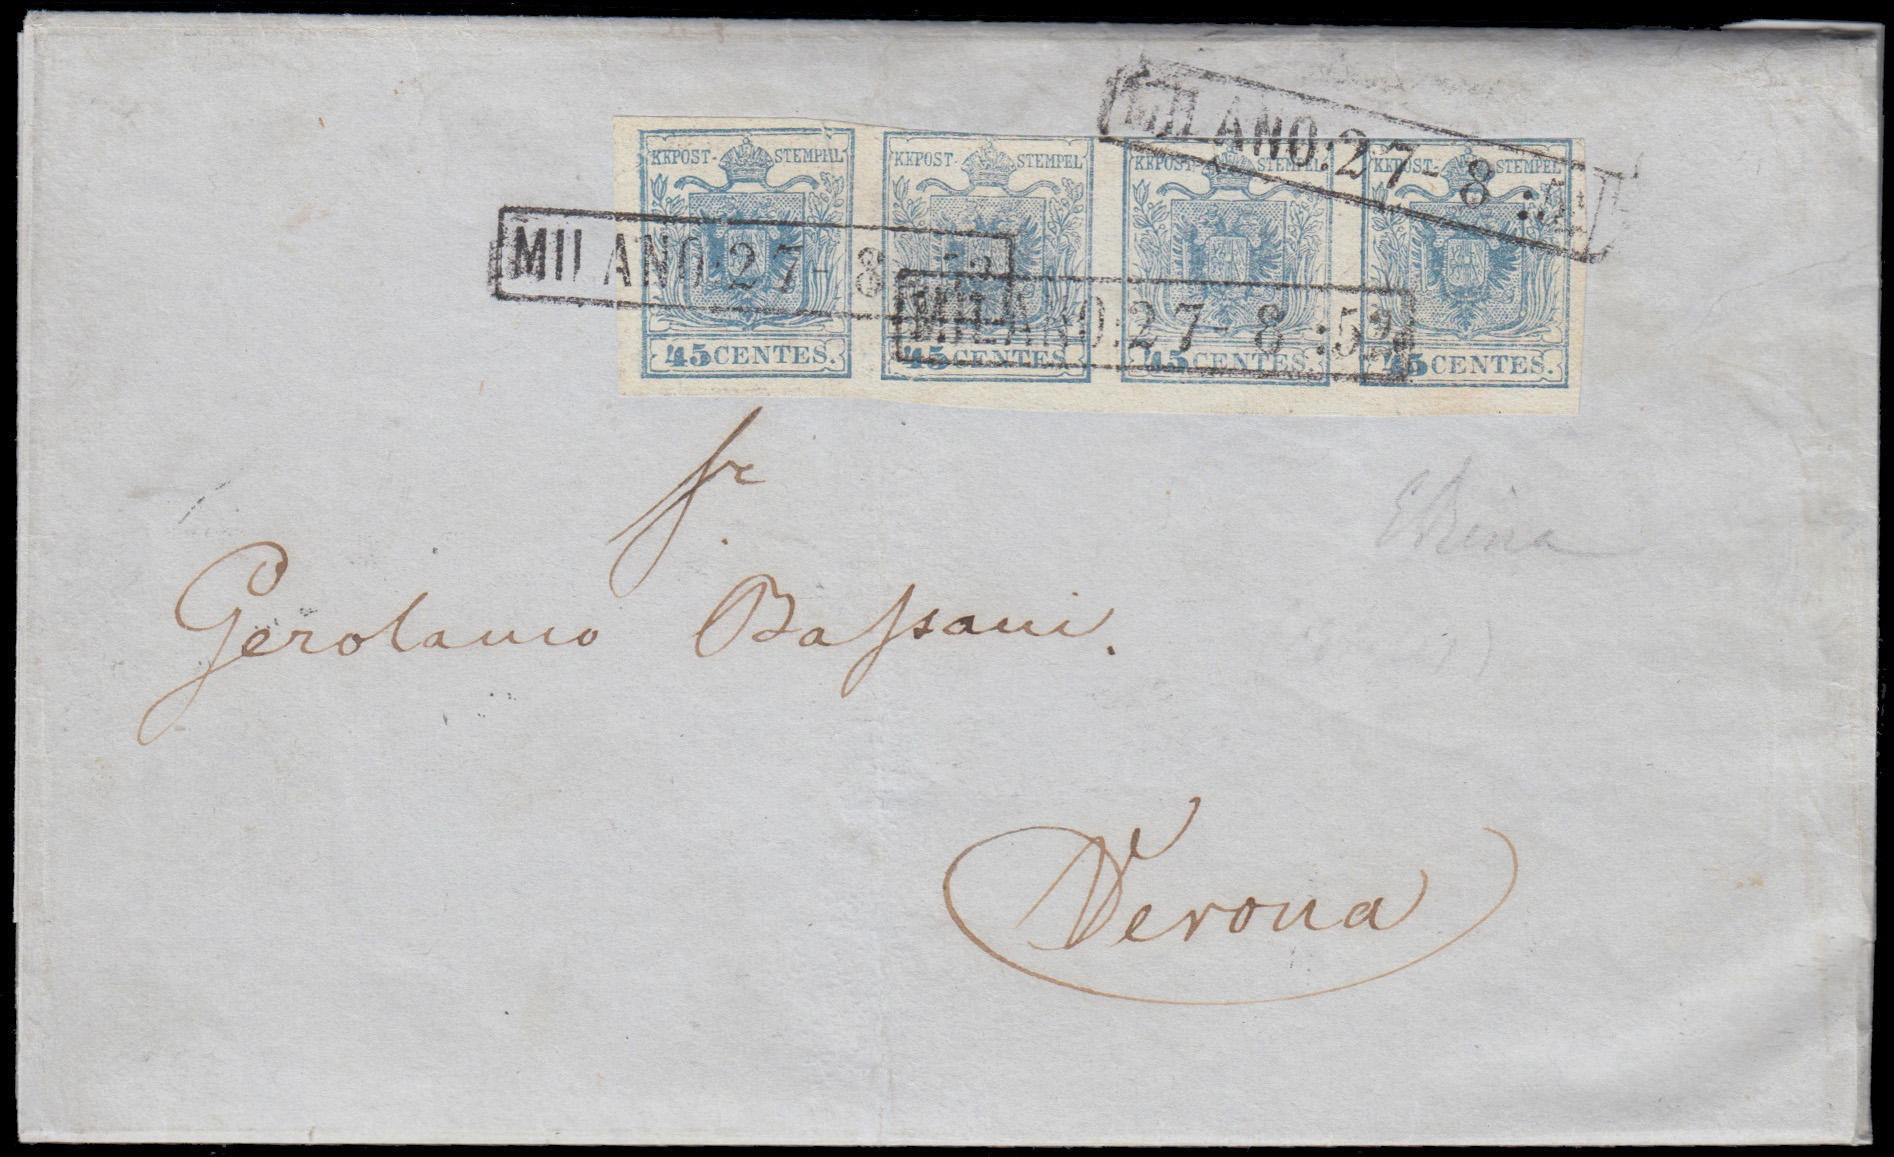 KKPOST- STEMPEL KKPOST- STEMPEL KKPOST- STEMPEL KKPOST- STEMPEL
MILANO:27-8:5
MILANO:27-8 52
MILANO:27-8:52
45 CENTES. 45 CENTES. 45 CENTES. 45 CENTES.
fr
Gerolamo Bassani.
Verona